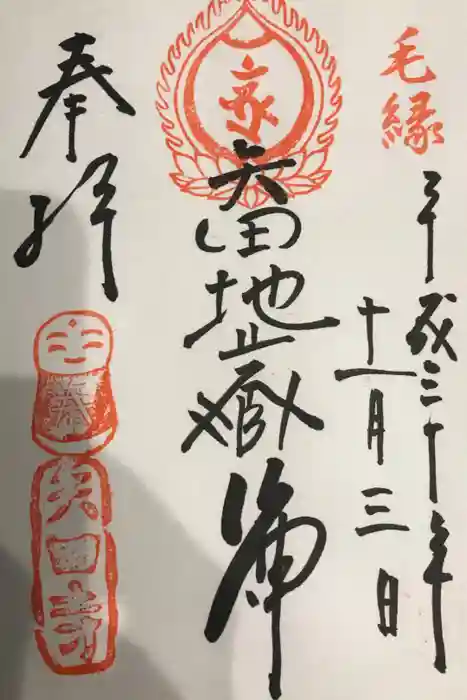 毛縁
平成三十年
十一月三日
矢田地蔵尊
奉拝
矢田寺